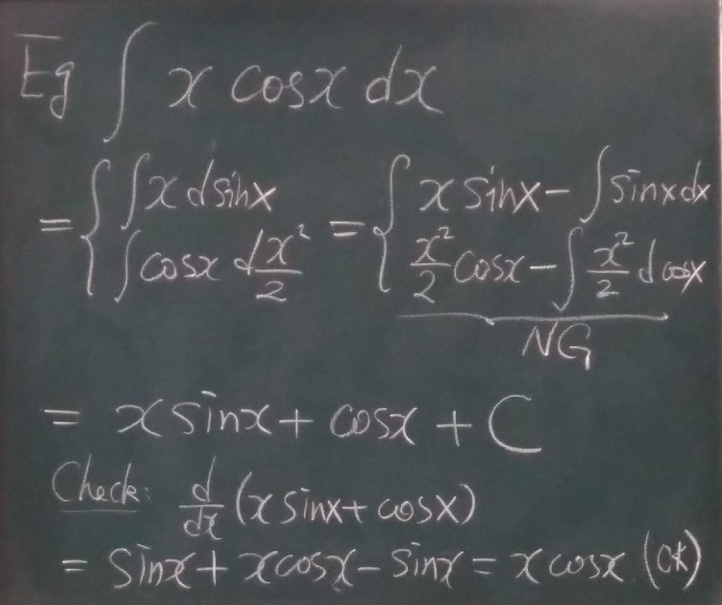 Eg ∫ x cosx dx
= { ∫x dsinx = { x sinx − ∫sinxdx
∫cosx d x²/2 x²/2 cosx − ∫ x²/2 d cosx
NG
= x sinx + cosx + C
Check: d/dx (x sinx + cosx)
= sinx + xcosx − sinx = x cosx (ok)